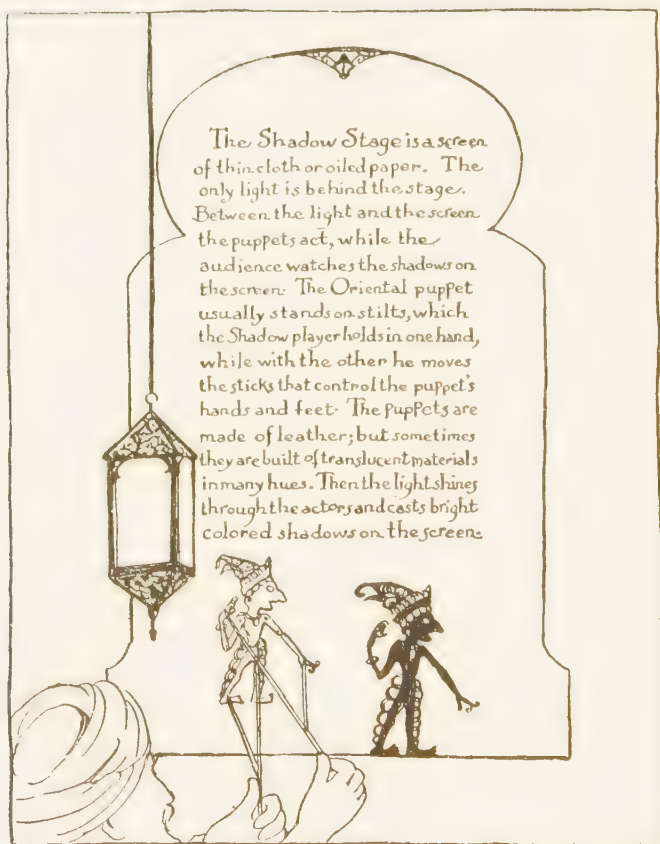 The Shadow Stage is a screen
of thin cloth or oiled paper. The
only light is behind the stage.
Between the light and the screen
the puppets act, while the
audience watches the shadows on
the screen. The Oriental puppet
usually stands on stilts, which
the Shadow player holds in one hand,
while with the other he moves
the sticks that control the puppet's
hands and feet. The Puppets are
made of leather; but sometimes
they are built of translucent materials
in many hues. Then the light shines
through the actors and casts bright
colored shadows on the screen.